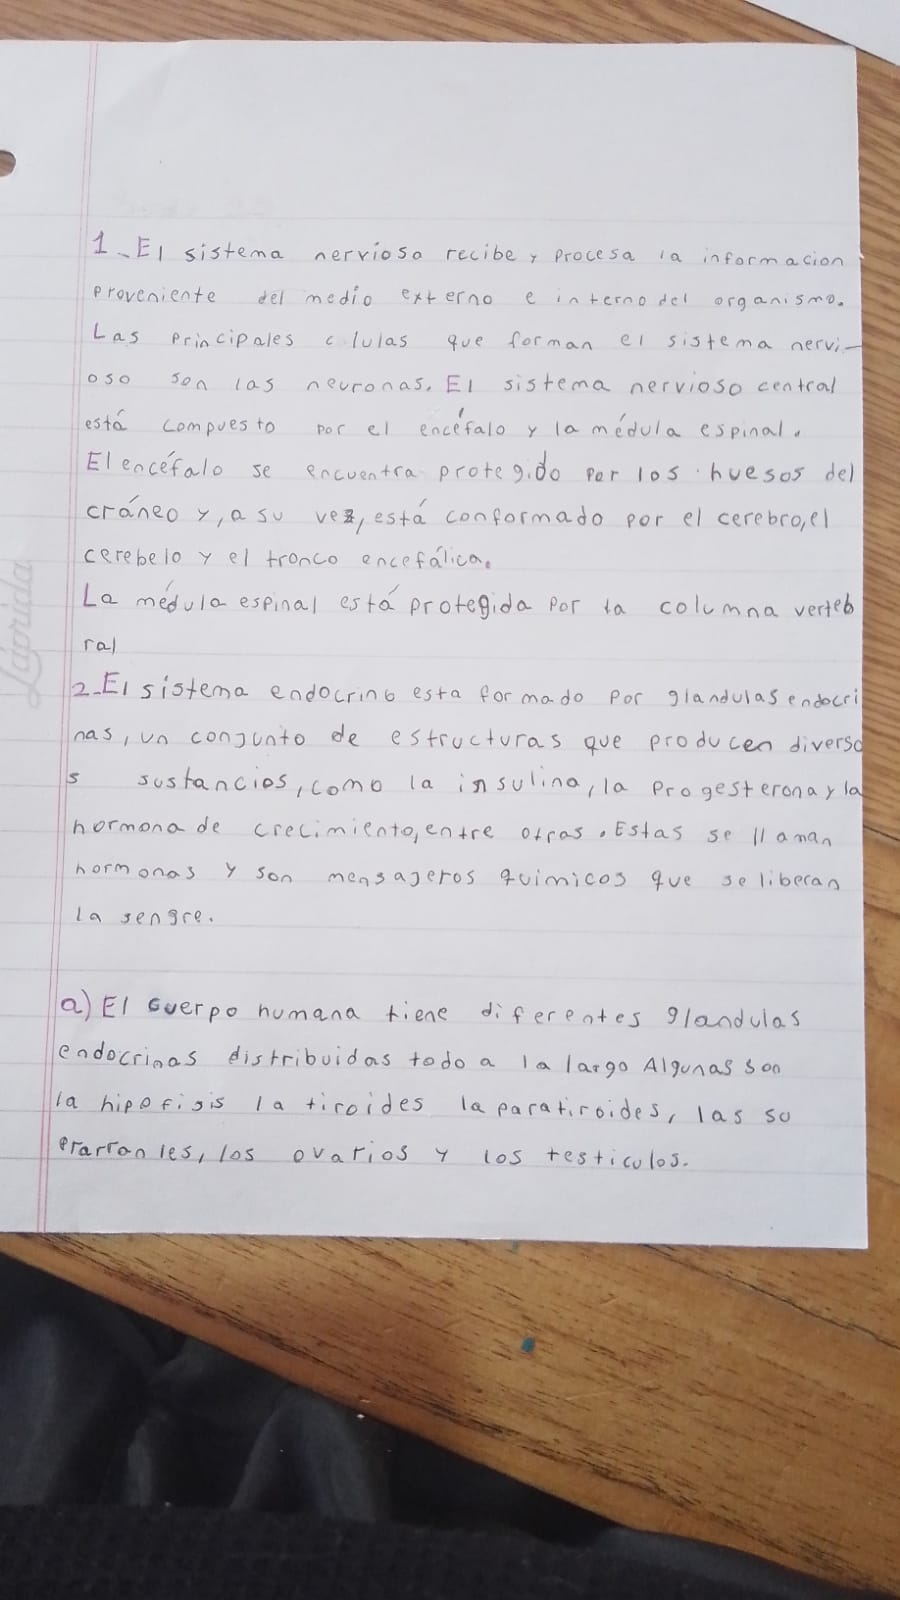 1_ El sistema nervioso recibe y procesa la informacion
proveniente del medio externo e interno del organismo.
Las principales c lulas que forman el sistema nervi-
oso son las neuronas. El sistema nervioso central
está compuesto por el encéfalo y la médula espinal.
El encéfalo se encuentra protegido por los huesos del
cráneo y, a su vez, está conformado por el cerebro, el
cerebelo y el tronco encefálica.
La médula espinal está protegida por la columna verteb
ral
2_ El sistema endocrino esta formado por glandulas endocri
nas, un conjunto de estructuras que producen diverso
s sustancios, como la insulina, la progesterona y la
hormona de crecimiento, entre otras. Estas se llaman
hormonas y son mensajeros quimicos que se liberan
la sengre.
a) El cuerpo humana tiene diferentes glandulas
endocrinas distribuidas todo a la largo Algunas son
la hipofisis la tiroides la paratiroides, las su
les, los ovarios y los testiculos.
Laprida